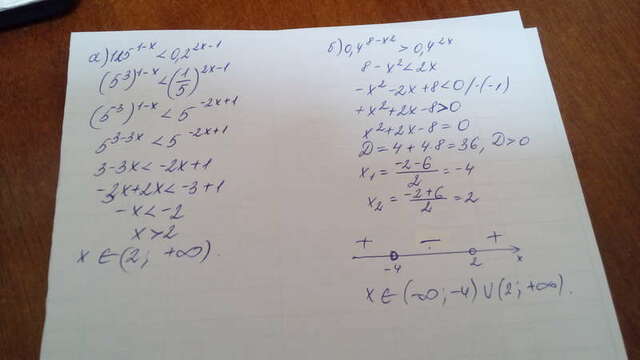 а) 125^{1-x} < 0,2^{2x-1}
(5^3)^{1-x} < (1/5)^{2x-1}
(5^3)^{1-x} < 5^{-2x+1}
5^{3-3x} < 5^{-2x+1}
3-3x < -2x+1
-3x+2x < -3+1
-x < -2
x > 2
x ∈ (2; +∞).
б) 0,4^{8-x2} > 0,4^{2x}
8-x² < 2x
-x²-2x+8 < 0 /·(-1)
+x²+2x-8 > 0
x²+2x-8=0
D = 4+4·8 = 36, D>0
x₁ = (-2-6)/2 = -4
x₂ = (-2+6)/2 = 2
+ − +
-4 2 x
x ∈ (-∞; -4) ∪ (2; +∞).